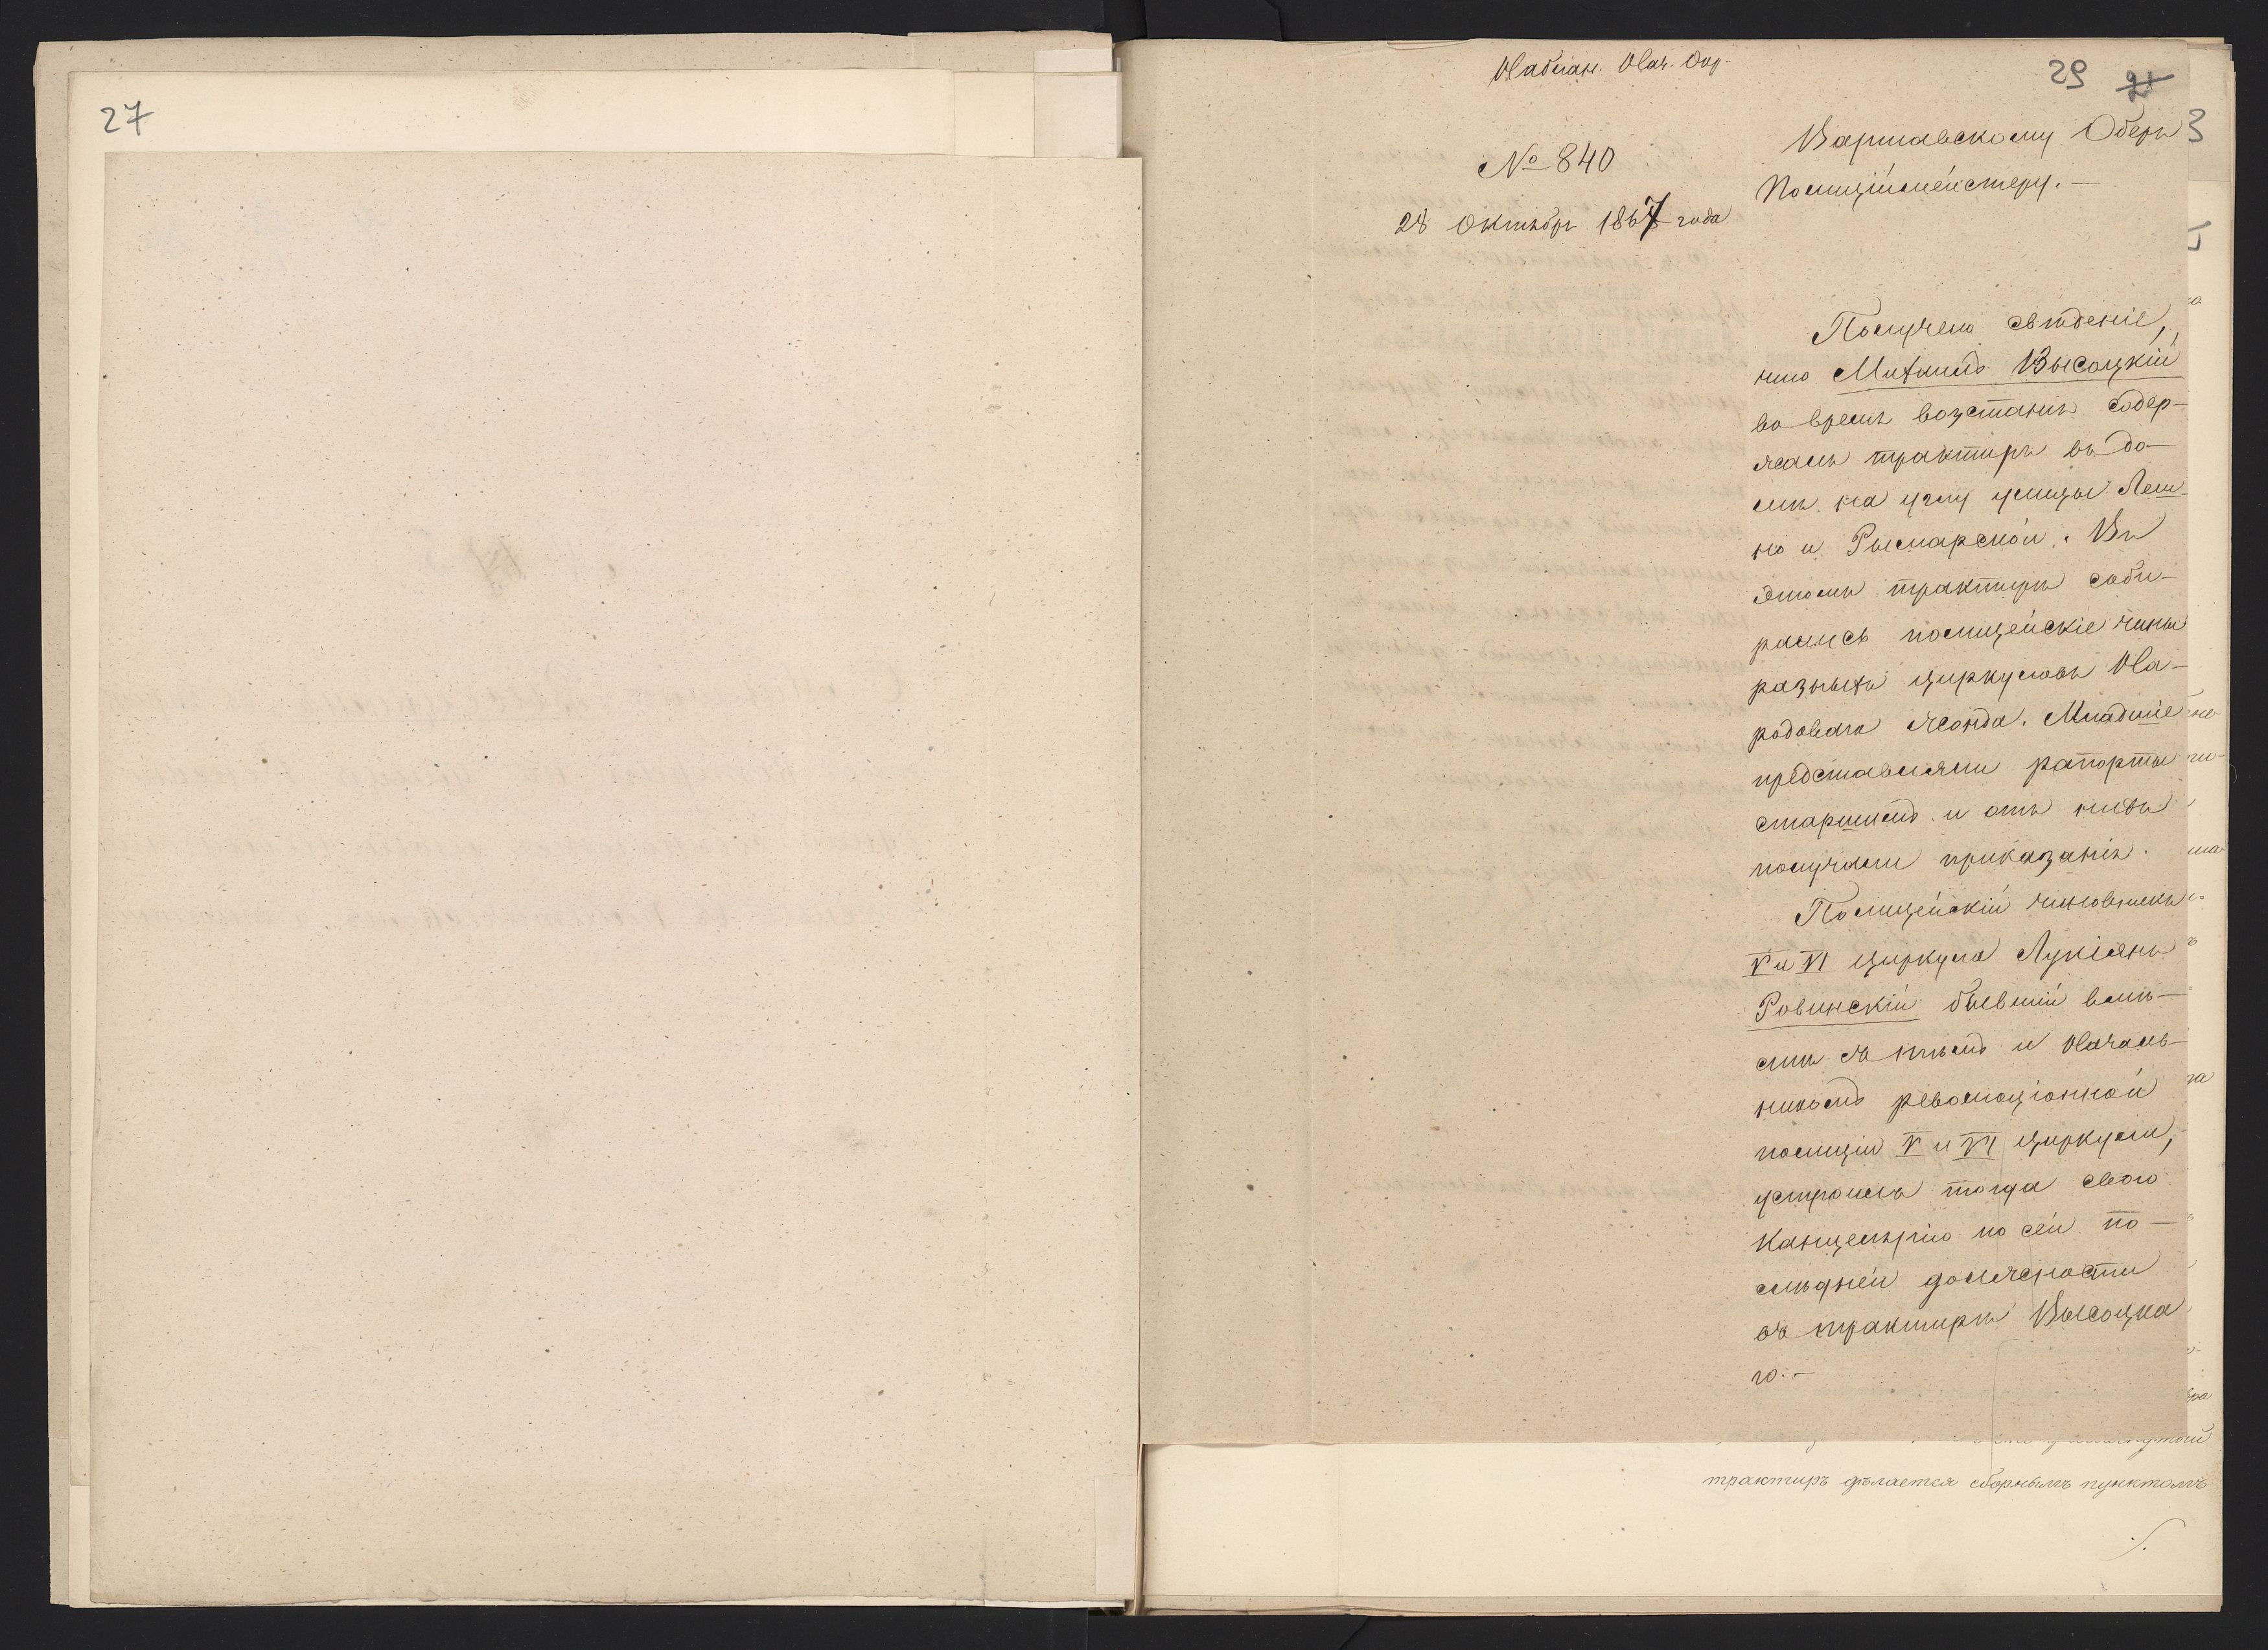 27
29 21
№ 840
28 Октябрь 1867 года
Варшавскому Оберъ
Полиціймейстеру.—
Получено свѣденіе,
что Михаилъ Высоцкій
во время возстанія содер-
жалъ трактиръ въ до-
мѣ на углу улицы Леш-
но и Рымарской. Въ
этомъ трактирѣ соби-
рались полицейскіе чины
разныхъ циркуловъ На-
родоваго Жонда. Младшіе
представляли рапорты
старшимъ и отъ нихъ
получали приказанія.
Полицейскій чиновникъ
V и VI циркула Лукіянъ
Ровинскій бывшій вмѣ-
стѣ съ тѣмъ и Началь-
никомъ революціонной
полиціи V и VI циркула,
устроилъ тогда свою
Канцелярію по сей по-
слѣдней должности
въ трактирѣ Высоцка
го.—
трактиръ дѣлается сборнымъ пунктомъ